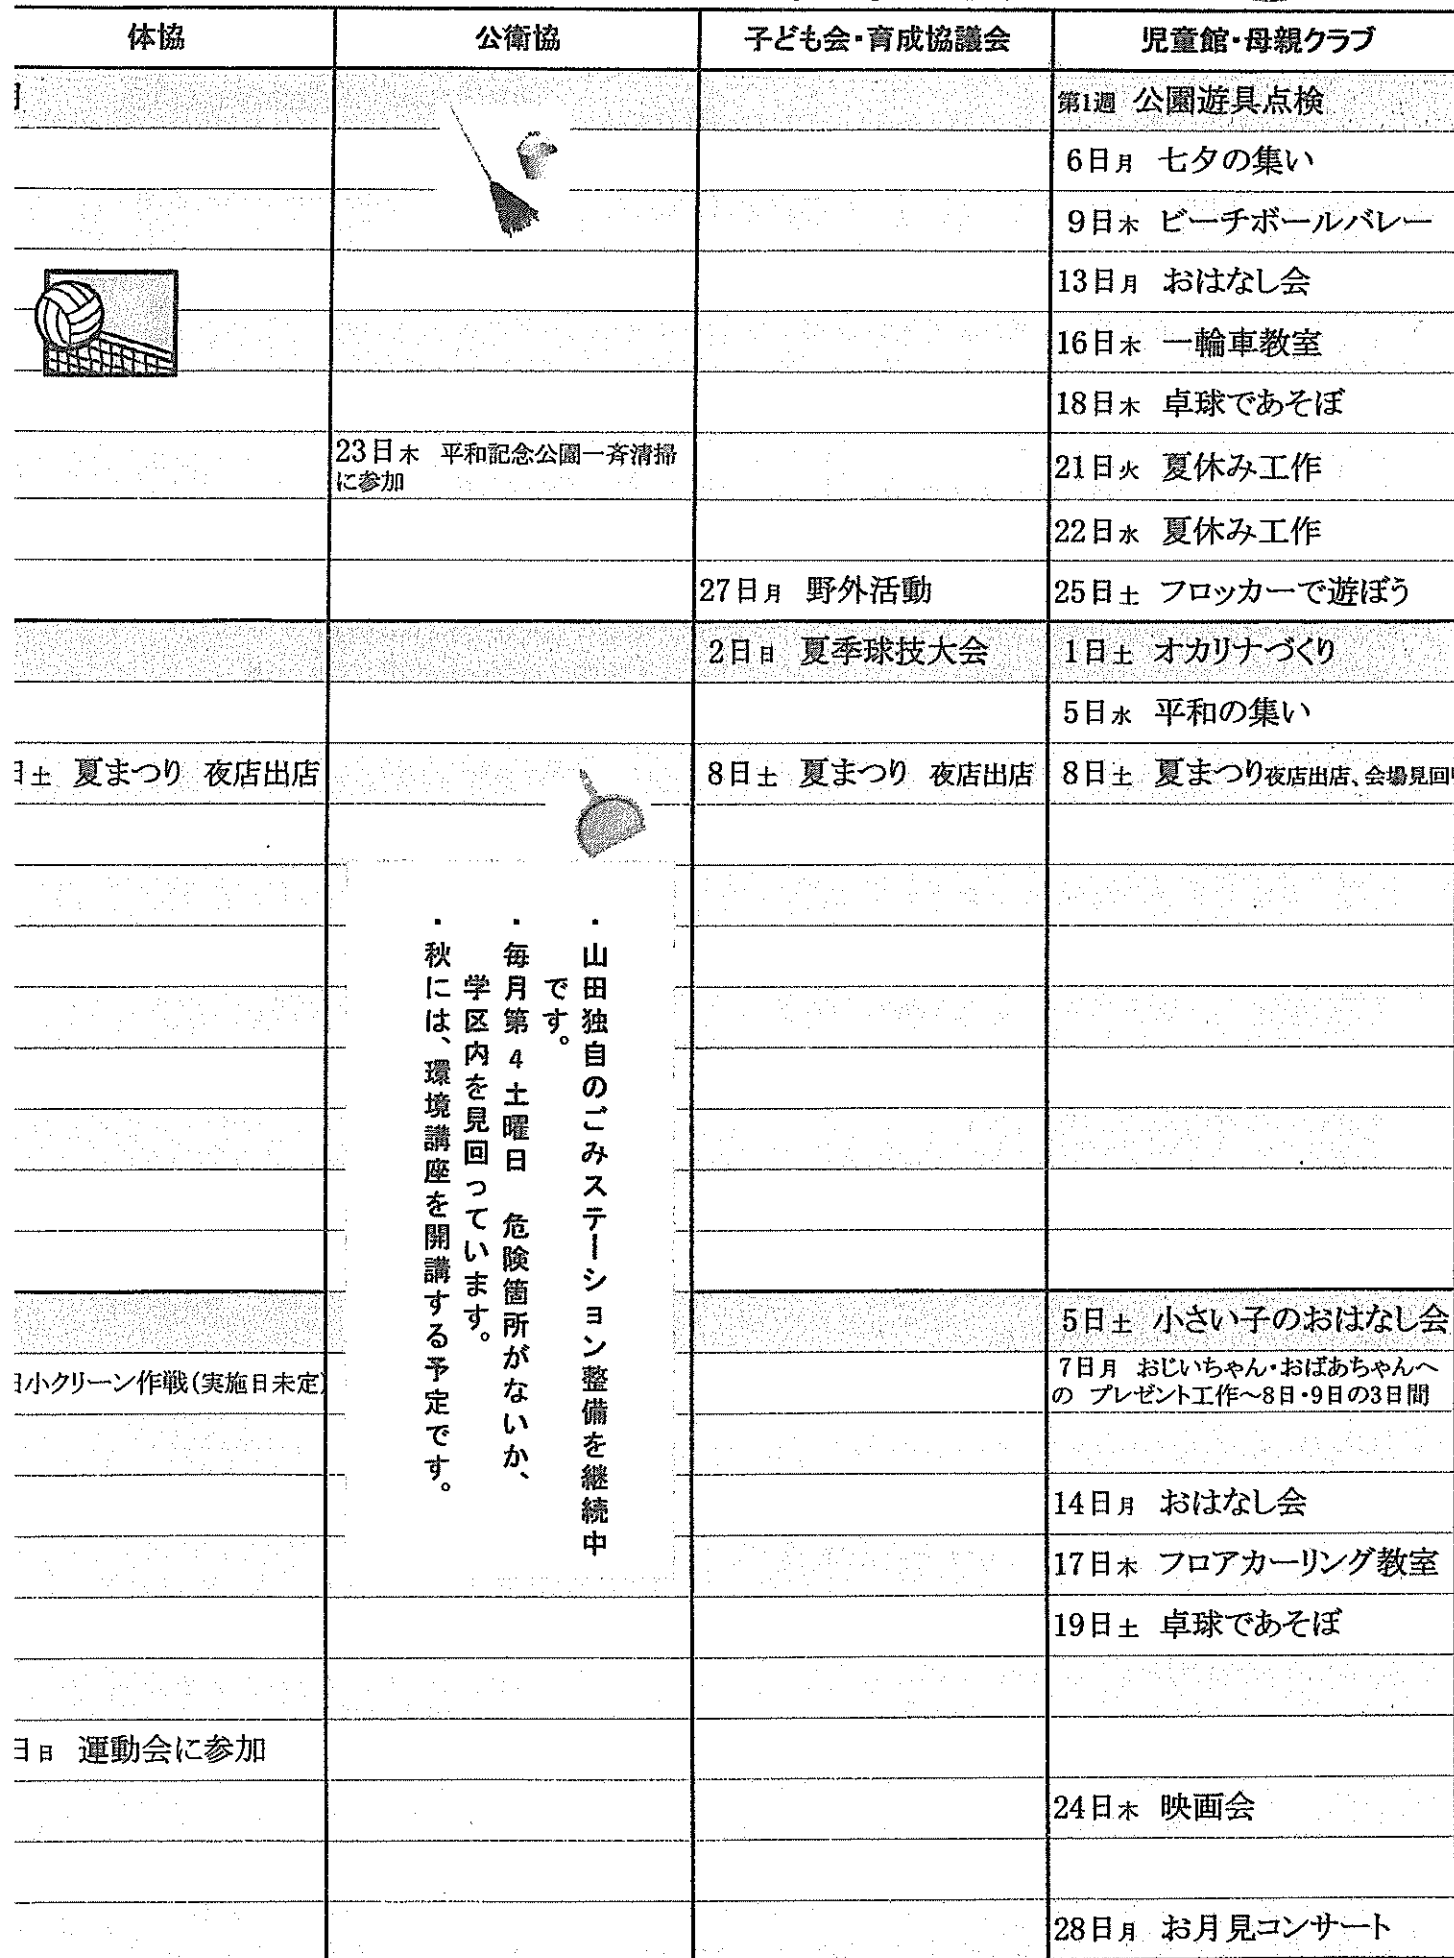 体協 公衛協 子ども会・育成協議会 児童館・母親クラブ
第1週 公園遊具点検
6日月 七夕の集い
9日木 ビーチボールバレー
13日月 おはなし会
16日木 一輪車教室
18日木 卓球であそぼ
23日木 平和記念公園一斉清掃
に参加
21日火 夏休み工作
22日水 夏休み工作
27日月 野外活動 25日土 フロッカーで遊ぼう
2日日 夏季球技大会 1日土 オカリナづくり
5日水 平和の集い
日土 夏まつり 夜店出店 8日土 夏まつり 夜店出店 8日土 夏まつり夜店出店、会場見回り
・山田独自のごみステーション整備を継続中
です。
・毎月第4土曜日 危険箇所がないか、
学区内を見回っています。
・秋には、環境講座を開講する予定です。
5日土 小さい子のおはなし会
日小クリーン作戦(実施日未定) 7日月 おじいちゃん・おばあちゃんへ
の プレゼント工作～8日・9日の3日間
14日月 おはなし会
17日木 フロアカーリング教室
19日土 卓球であそぼ
日日 運動会に参加
24日木 映画会
28日月 お月見コンサート